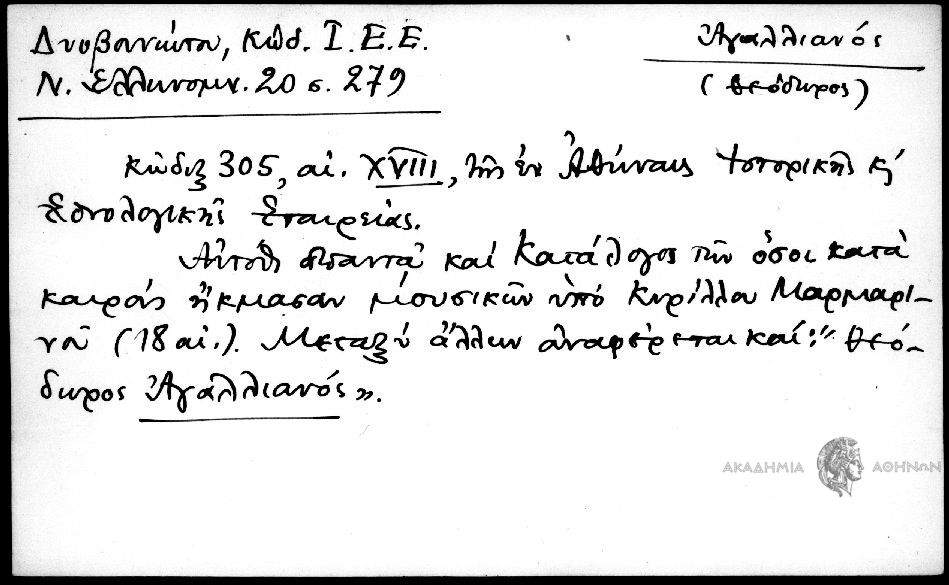 Δυοβουνιώτου, Κώδ. Ι.Ε.Ε.
Ν. Ελληνομν. 20 σ. 279
Ἀγαλλιανός
(Θεόδωρος)
Κῶδιξ 305, αἰ. XVIII, τῆς ἐν Ἀθήναις Ἱστορικῆς κ
Ἐθνολογικῆς Ἑταιρείας.
Αὐτόθι ἀπαντᾷ καί Κατάλογος τῶν ὅσοι κατὰ
καιρούς ἤκμασαν μουσικῶν ὑπό Κυρίλλου Μαρμαρι-
νοῦ (18 αἰ.). Μεταξύ ἄλλων ἀναφέρεται καί: "Θεό-
δωρος Ἀγαλλιανός».
ΑΚΑΔΗΜΙΑ ΑΘΗΝΩΝ